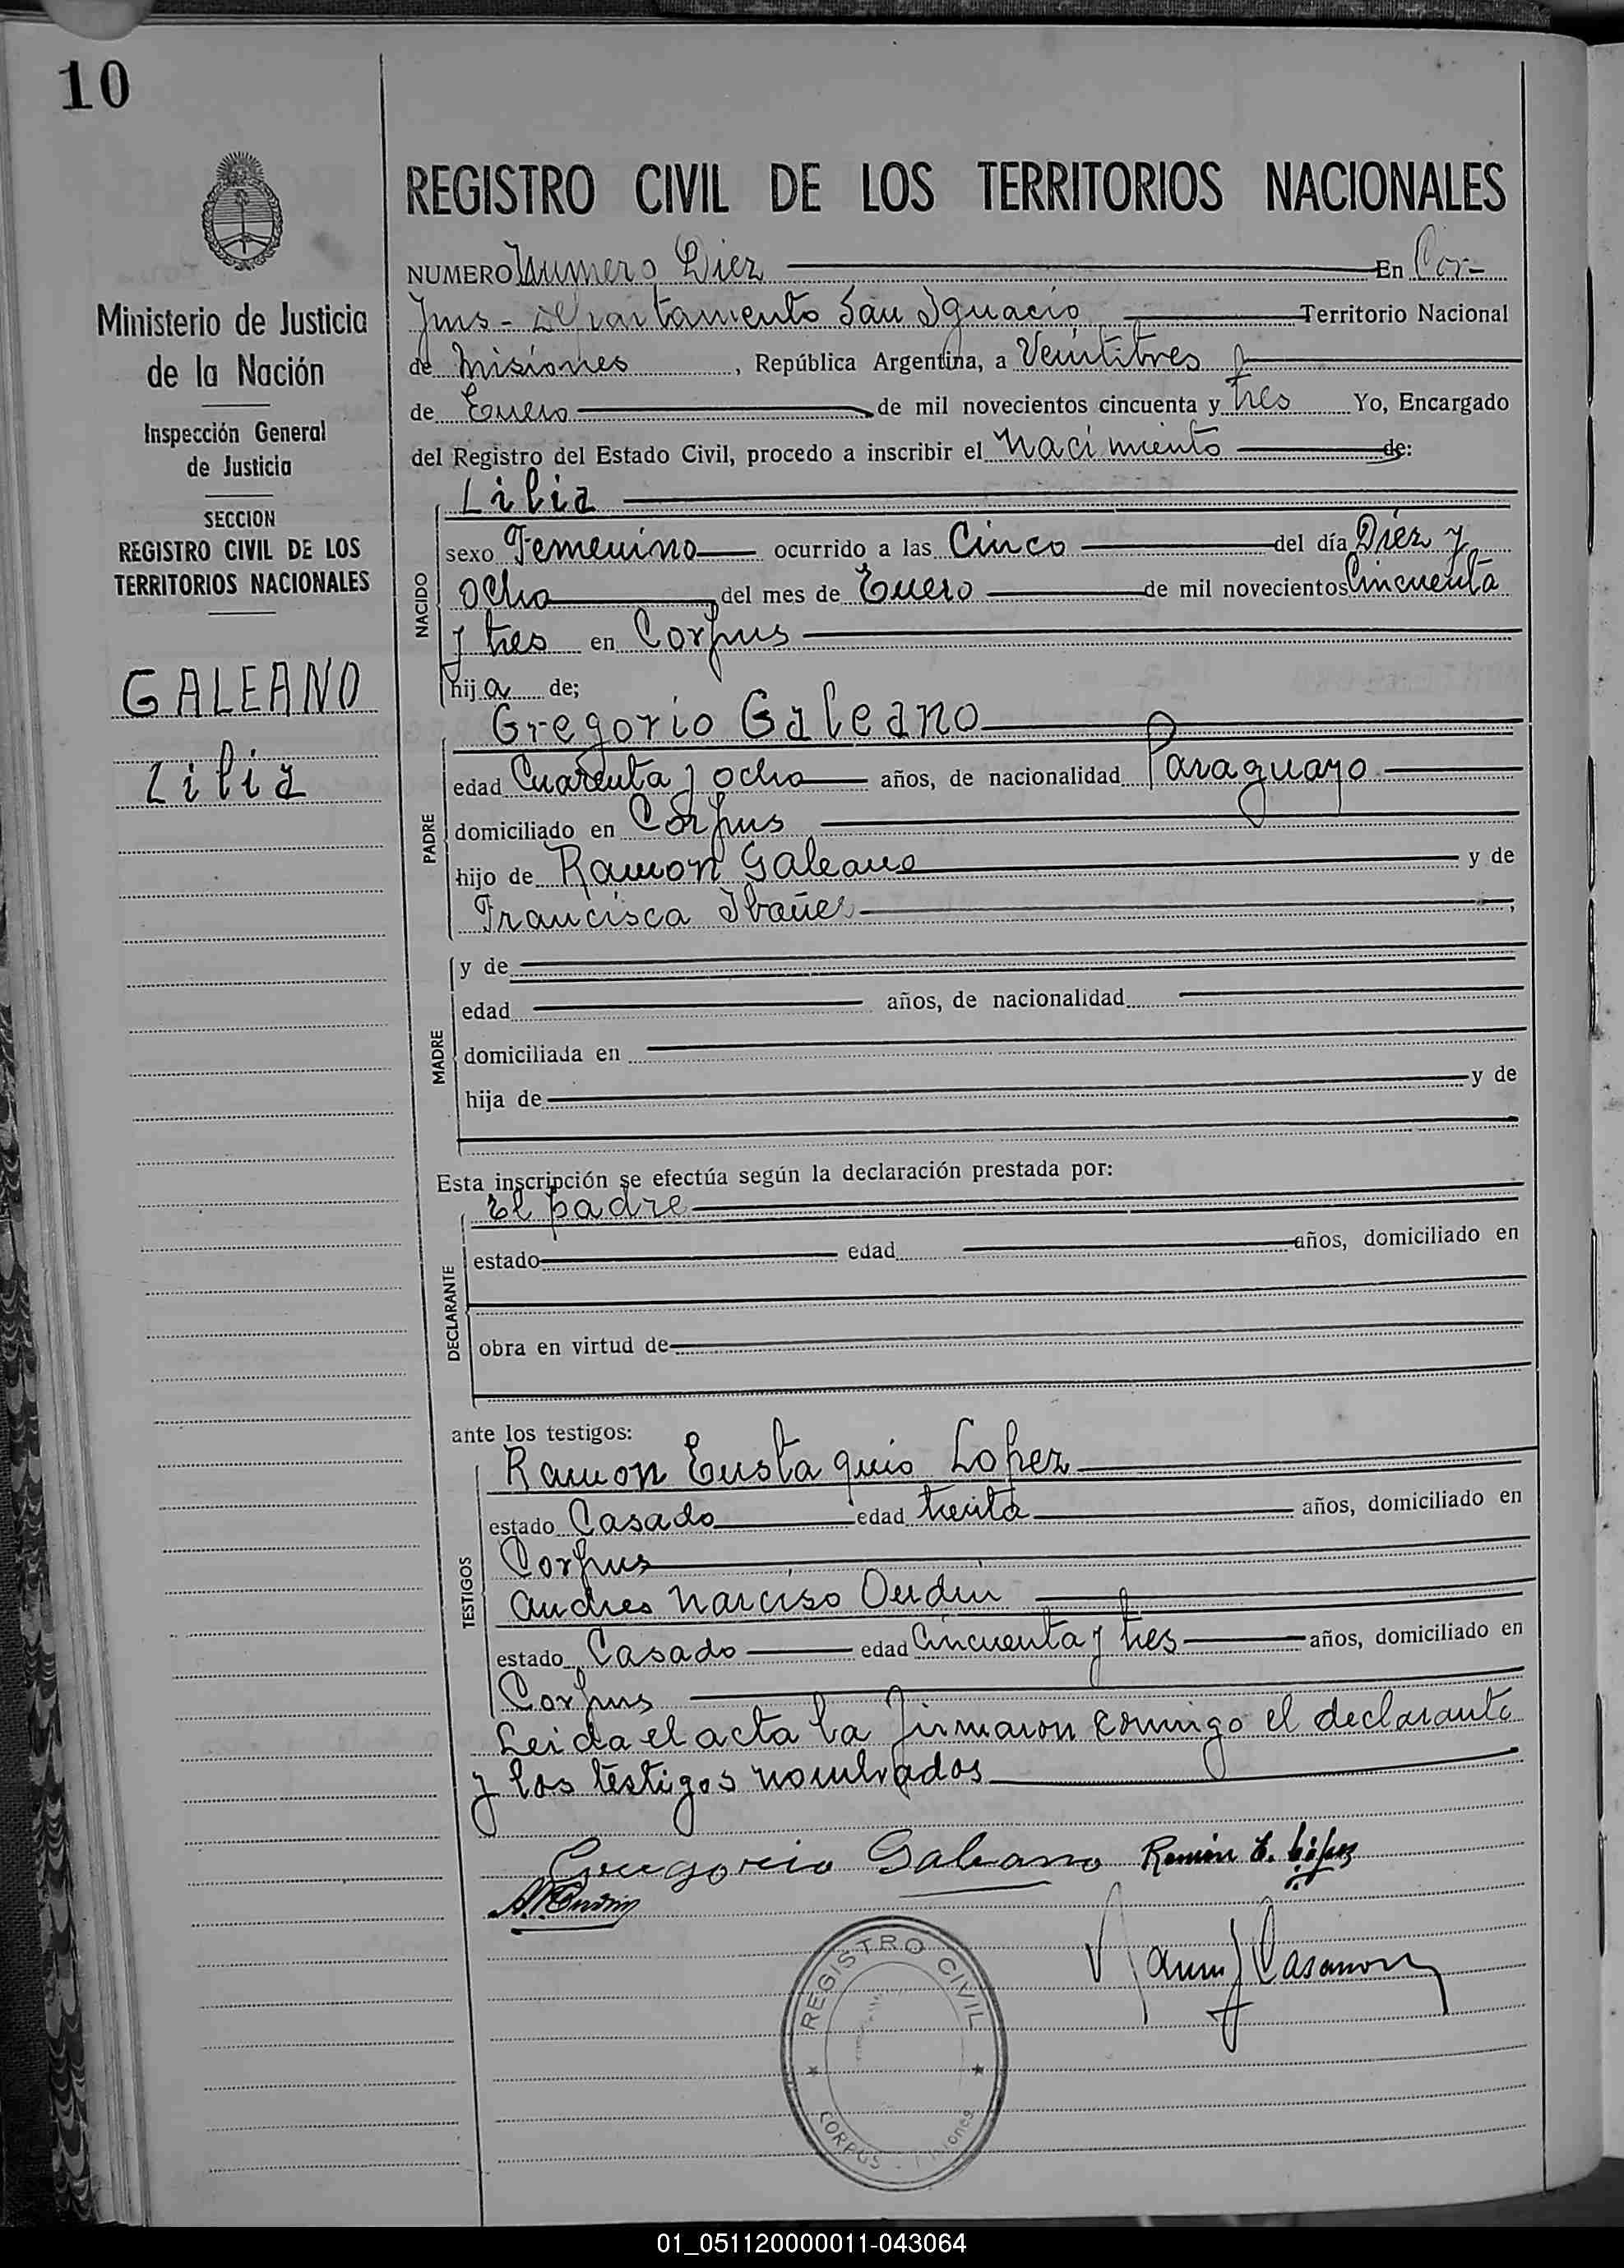 10
REGISTRO CIVIL DE LOS TERRITORIOS NACIONALES
Ministerio de Justicia
de la Nación
Inspección General
de Justicia
SECCION
REGISTRO CIVIL DE LOS
TERRITORIOS NACIONALES
GALEANO
Lilia
NUMERO Numero Diez En Cor-
pus - Departamento San Ignacio Territorio Nacional
de Misiones, República Argentina, a Veintitres
de Enero de mil novecientos cincuenta y tres Yo, Encargado
del Registro del Estado Civil, procedo a inscribir el Nacimiento de:
NACIDO
Lilia
sexo Femenino ocurrido a las Cinco del día Diez y
ocho del mes de Enero de mil novecientos Cincuenta
y tres en Corpus
hija de;
PADRE
Gregorio Galeano
edad Cuarenta y ocho años, de nacionalidad Paraguayo
domiciliado en Corpus
hijo de Ramon Galeano y de
Francisca Ibañez,
MADRE
y de
edad años, de nacionalidad
domiciliada en
hija de y de
Esta inscripción se efectúa según la declaración prestada por:
DECLARANTE
El padre
estado edad años, domiciliado en
obra en virtud de
ante los testigos:
TESTIGOS
Ramon Eustaquio Lopez
estado Casado edad treinta años, domiciliado en
Corpus
Andres Narciso
estado Casado edad Cincuenta y tres años, domiciliado en
Corpus
Leida el acta la firmaron conmigo el declarante
y los testigos nombrados
Gregorio Galeano Ramón E. López
Casanova
REGISTRO CIVIL
CORPUS - Misiones
01_051120000011-043064